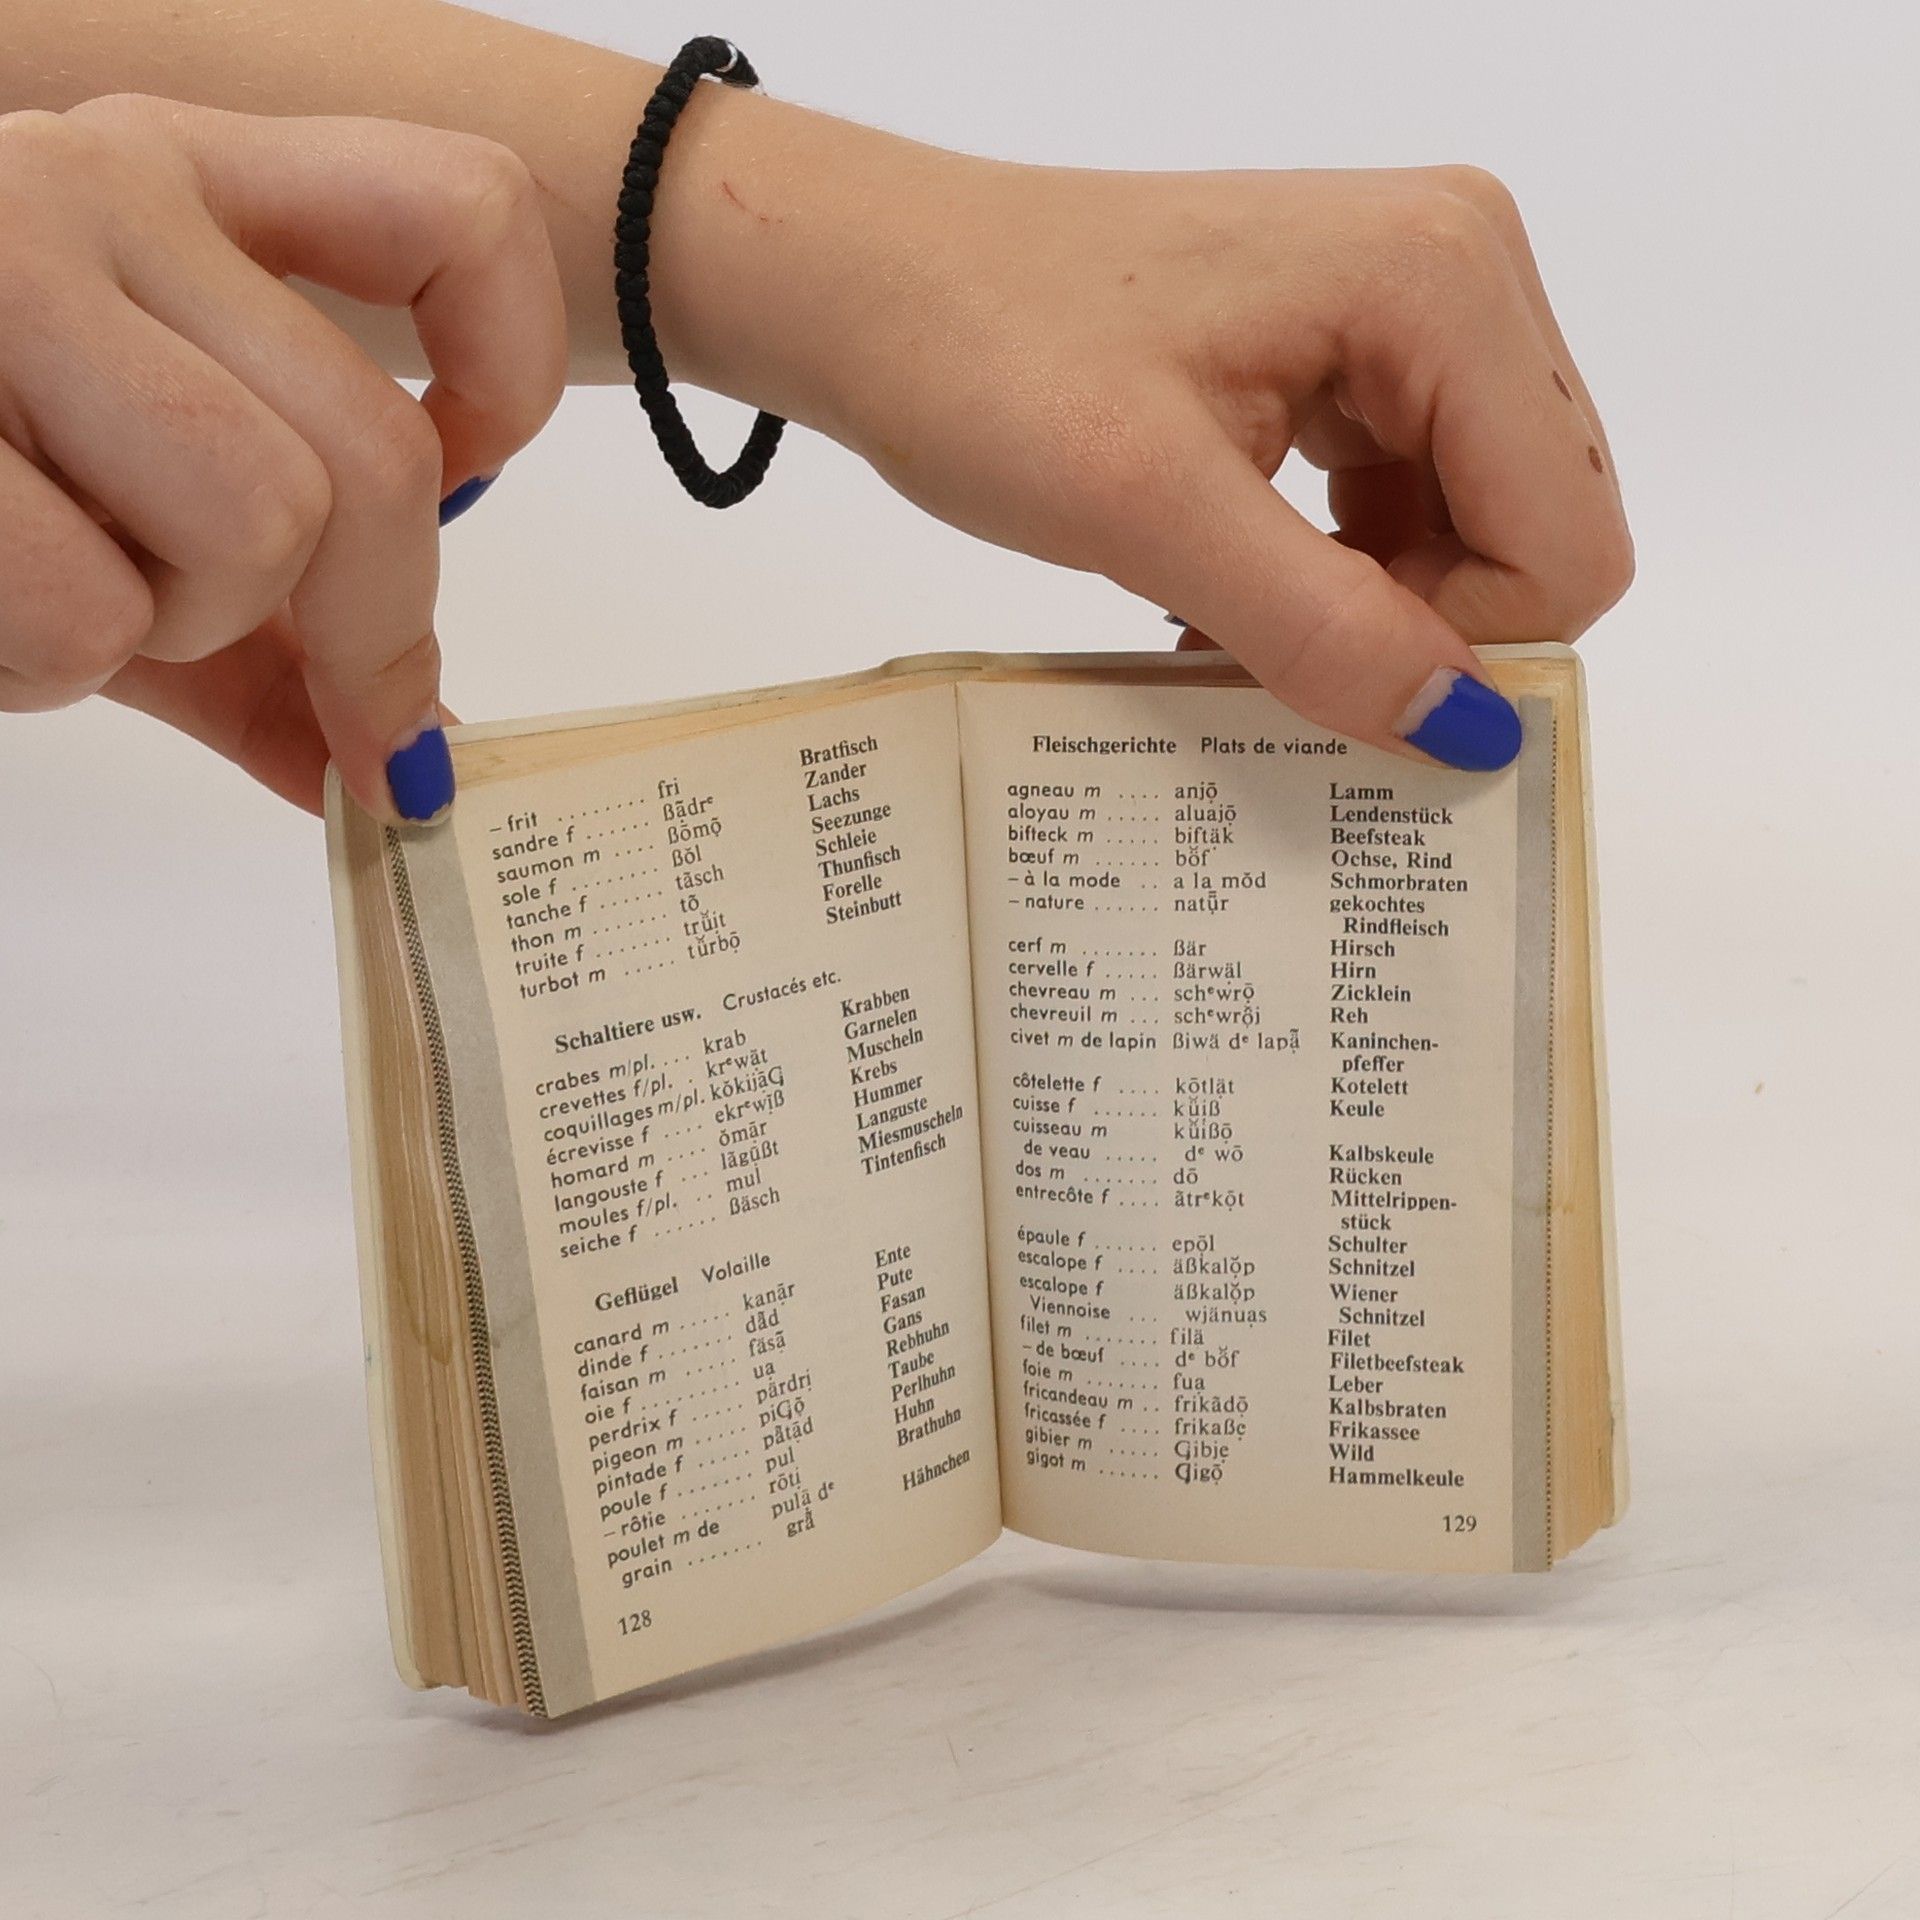 – frit ........ fri Bratfisch
sandre f ...... ßãdrᵉ Zander
saumon m .... ßŏmō̜ Lachs
sole f ........ ßŏl Seezunge
tanche f ...... tãsch Schleie
thon m ....... tõ Thunfisch
truite f ....... trü̆it Forelle
turbot m ..... tü̆rbō̜ Steinbutt
Schaltiere usw. Crustacés etc.
crabes m/pl. ... krab Krabben
crevettes f/pl. . krᵉwät Garnelen
coquillages m/pl. kŏkijāG Muscheln
écrevisse f .... ekrᵉwiß Krebs
homard m .... ŏmār Hummer
langouste f ... lãgußt Languste
moules f/pl. .. mul Miesmuscheln
seiche f ...... ßäsch Tintenfisch
Geflügel Volaille
canard m ..... kanār Ente
dinde f ....... dãd Pute
faisan m ..... fäsã Fasan
oie f ......... ua Gans
perdrix f ..... pärdri Rebhuhn
pigeon m ..... piGõ Taube
pintade f ..... pãtād Perlhuhn
poule f ....... pul Huhn
– rôtie ....... rōti Brathuhn
poulet m de pulä dᵉ
grain ....... grã Hähnchen
128
Fleischgerichte Plats de viande
agneau m .... anjō̜ Lamm
aloyau m ..... aluajō̜ Lendenstück
bifteck m ..... biftäk Beefsteak
bœuf m ...... bö̆f Ochse, Rind
– à la mode .. a la mŏd Schmorbraten
– nature ...... natǖr gekochtes
Rindfleisch
cerf m ....... ßär Hirsch
cervelle f ..... ßärwäl Hirn
chevreau m ... schᵉwrō̜ Zicklein
chevreuil m ... schᵉwrö̆j Reh
civet m de lapin ßiwä dᵉ lapã Kaninchen-
pfeffer
côtelette f .... kōtlät Kotelett
cuisse f ...... kü̆iß Keule
cuisseau m kü̆ißō̜
de veau ..... dᵉ wō Kalbskeule
dos m ....... dō Rücken
entrecôte f .... ãtrᵉkōt Mittelrippen-
stück
épaule f ...... epōl Schulter
escalope f .... äßkalŏp Schnitzel
escalope f äßkalŏp Wiener
Viennoise ... wjänuas Schnitzel
filet m ....... filä Filet
– de bœuf .... dᵉ bö̆f Filetbeefsteak
foie m ....... fua Leber
fricandeau m .. frikãdō̜ Kalbsbraten
fricassée f .... frikaße Frikassee
gibier m ..... Gibje Wild
gigot m ...... Gigō̜ Hammelkeule
129